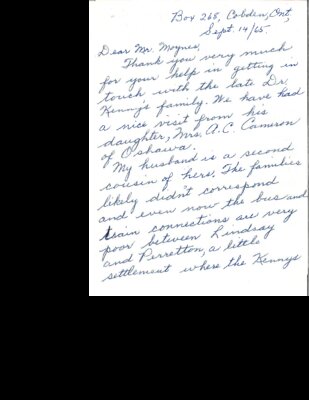 Box 268, Cobden, Ont,
Sept. 14/65.
Dear Mr. Moynes,
Thank you very much
for your help in getting in
touch with the late Dr.
Kenny's family. We have had
a nice visit from his
daughter, Mrs. A.C. Cameron
of Oshawa.
My husband is a second
cousin of hers. The families
likely didn't correspond
and even now the bus and
train connections are very
poor between Lindsay
and Perretton, a little
settlement where the Kennys